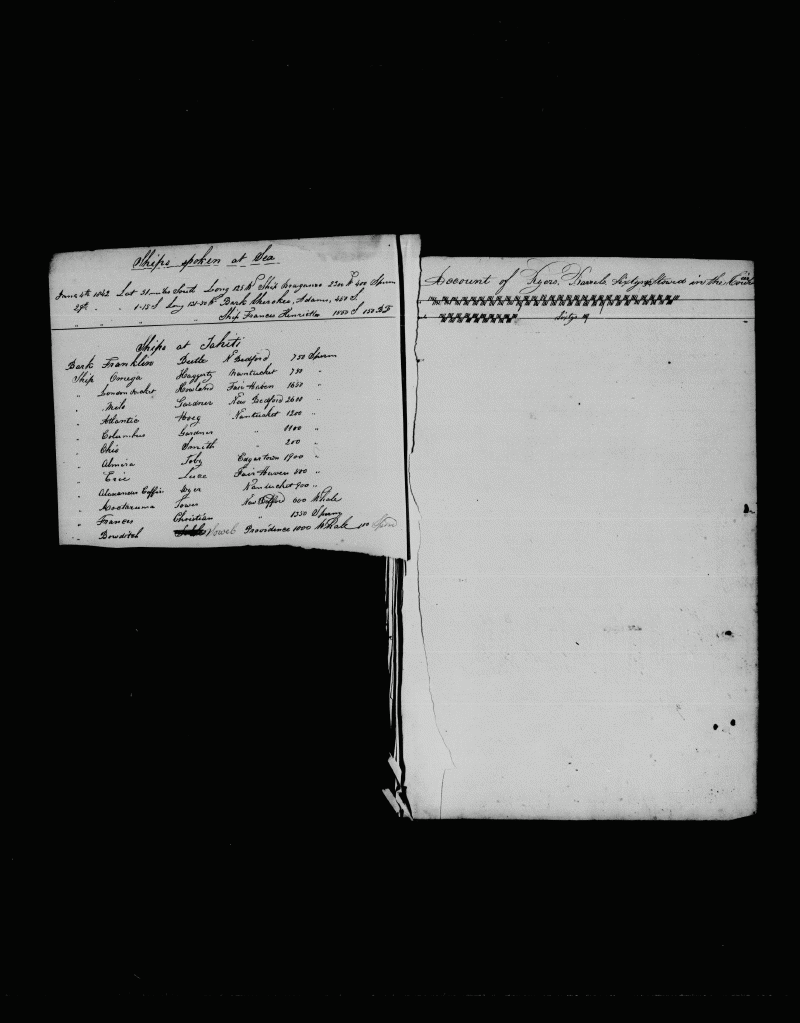 Ships spoken at Sea
June 4th 1842 Lat 31 miles South Long 125 W Ship Braganza 2200 W 400 Sperm
29th " " 1-15 S Long 131-30 W Bark Cherokee, Adams, 450 S
Ship Frances Henrietta 1850 S 150 BF
Ships at Tahiti
Bark Franklin Buttle N Bedford 750 Sperm
Ship Omega Haggerty Nantucket 750 "
" London Packet Howland Fair Haven 1650 "
" Milo Gardner New Bedford 2600 "
" Atlantic Hoeg Nantucket 1200 "
" Columbus Gardner " 1100 "
" Ohio Smith " 200 "
" Almira Toby Edgartown 1900 "
" Eric Luce Fair Haven 500 "
" Alexander Coffin Wyer Nantucket 900 "
" Moctezuma Tower New Bedford 600 Whale
" Frances Christian " 1350 Sperm
" Bowditch Sowle Providence 1000 Whale 100 Sperm
Account of Tryons, Travels, Sixtys Stowed in the
Sixtys 9